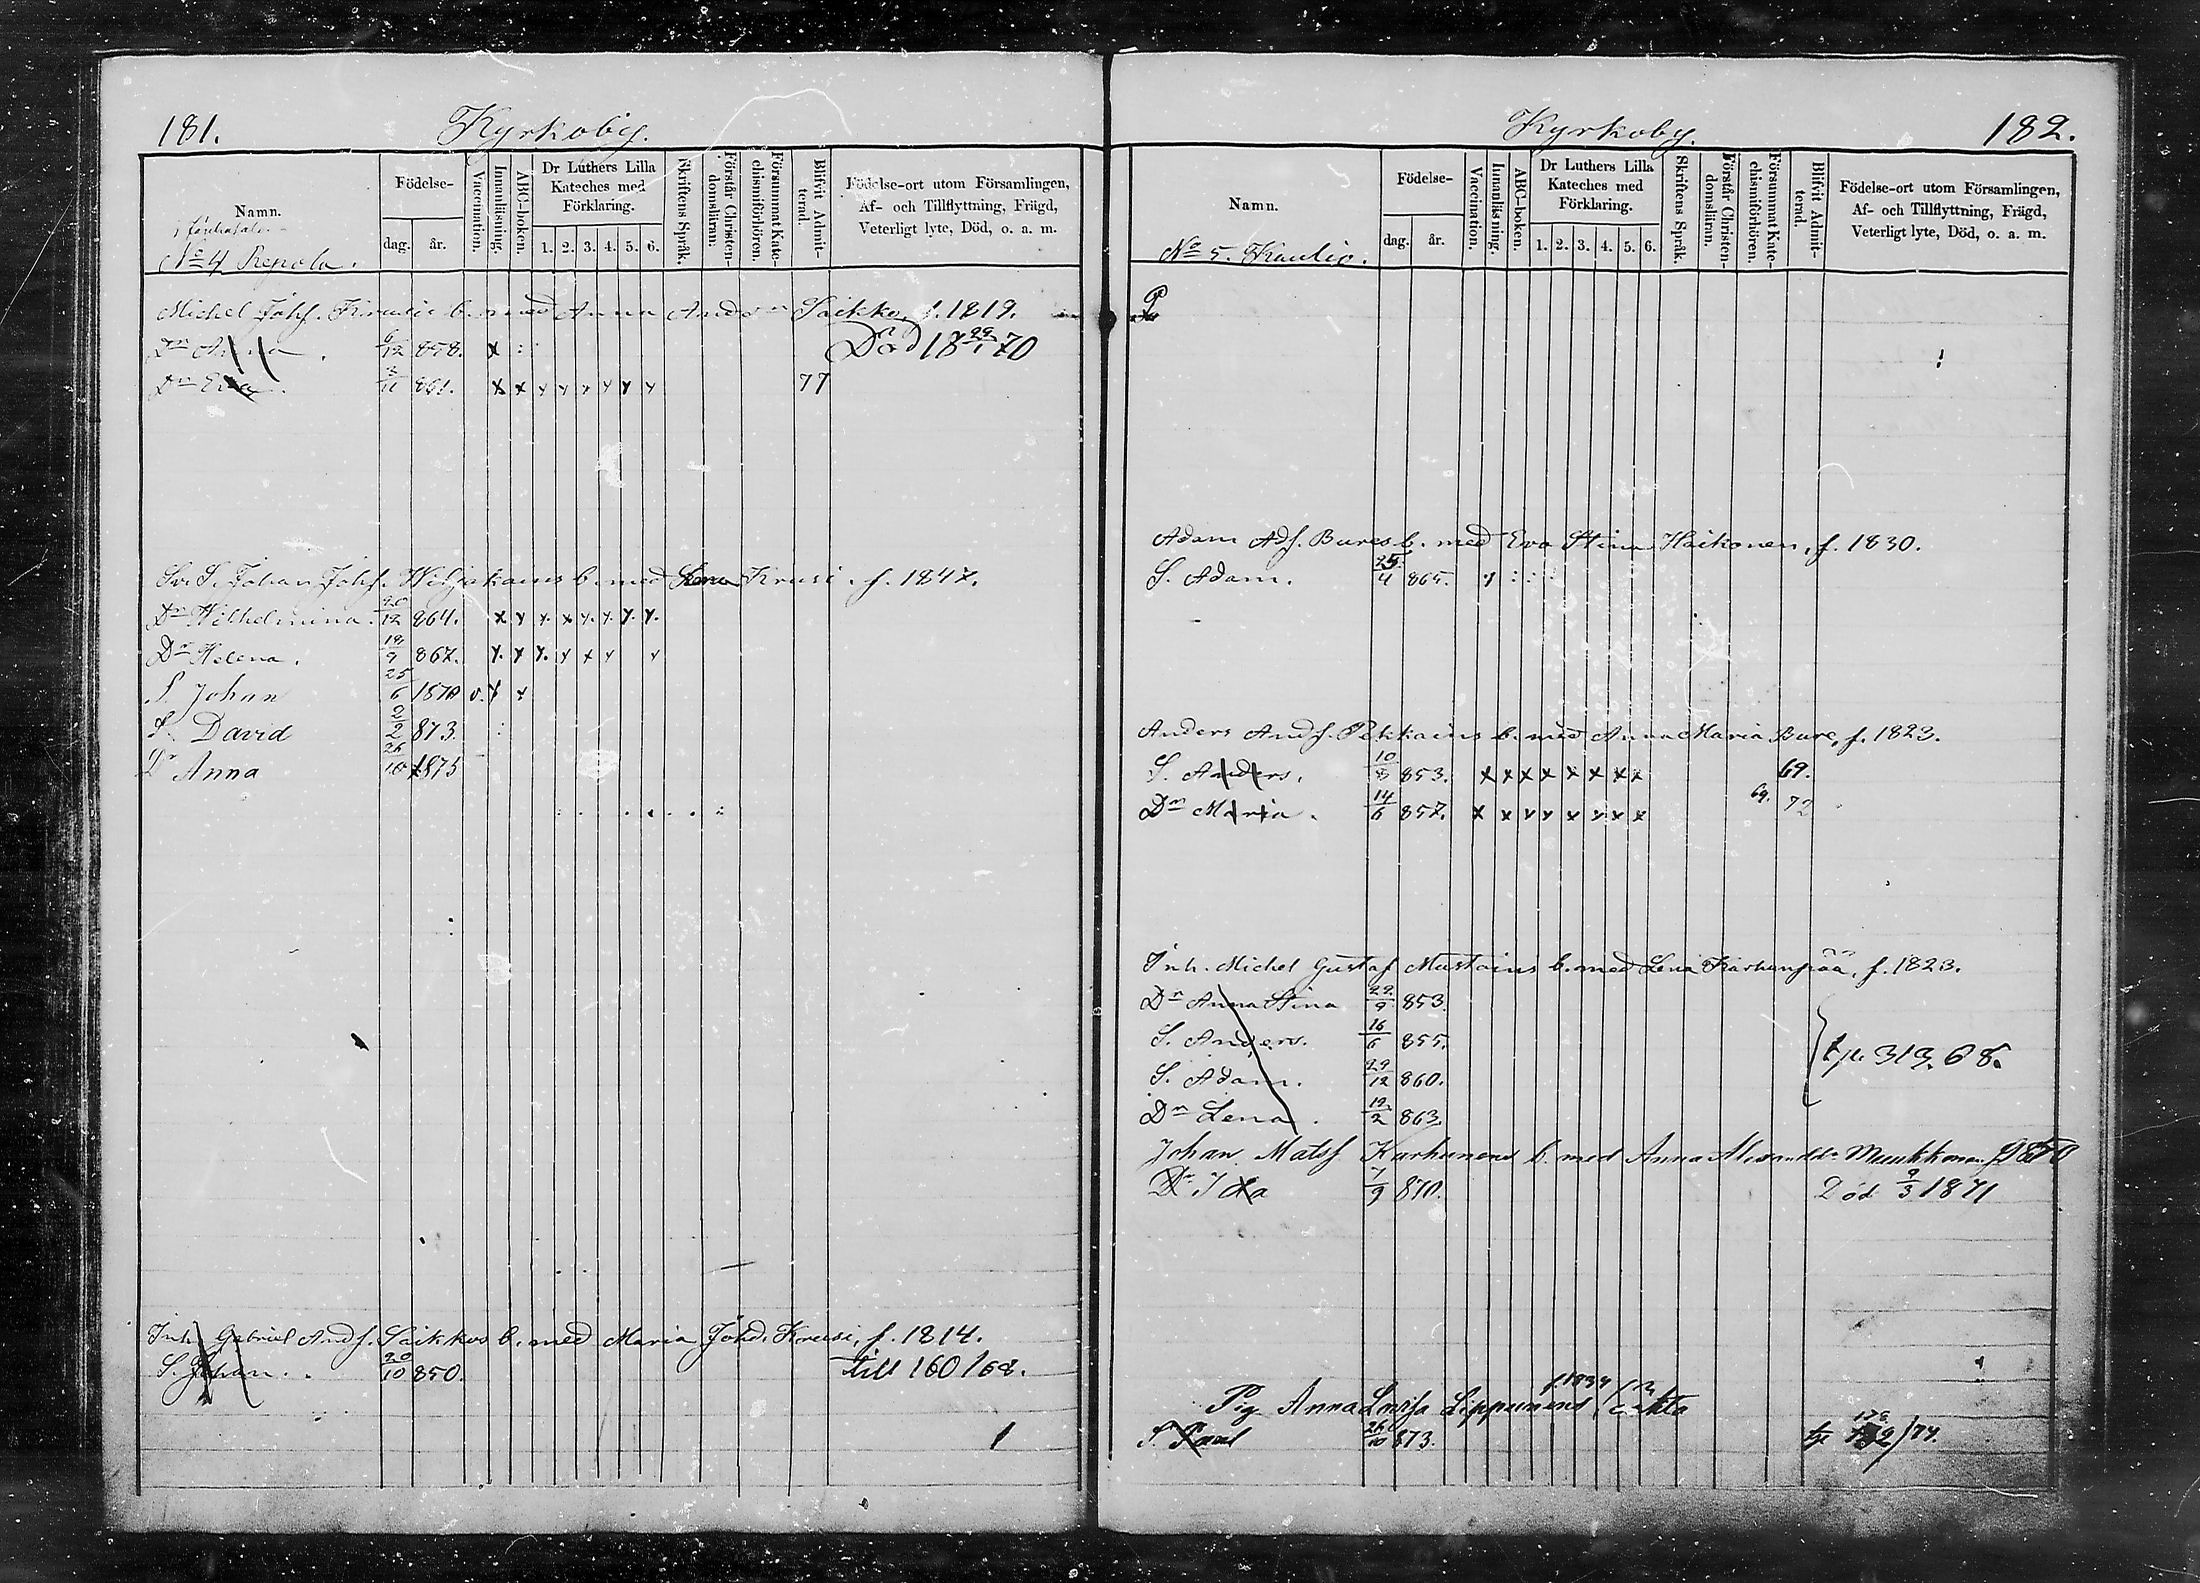 181.
Kyrkoby.
Namn.
Födelse-
dag.
år.
Vaccination.
Innanläsning.
ABC-boken.
Dr Luthers Lilla
Kateches med
Förklaring.
1. 2. 3. 4. 5. 6.
Skriftens Språk.
Förstår Christen-
domsläran.
Försummat Kate-
chismiförhören.
Blifvit Admit-
terad.
Födelse-ort utom Församlingen,
Af- och Tillflyttning, Frägd,
Veterligt lyte, Död, o. a. m.
No 4 Repola.
Michel Johs. Kruus b. med Anna Andsn Saikko, f. 1819.
Dn Anna. 6/12 858. x : Död 18 29/1 70
Dn Eva. 3/11 861. x x y y y y y y 77
Sv. S. Johan Johs. Wiljakains b. med Lena Krusi. f. 1847.
Dn Wilhelmina. 20/12 864. x y y. x y. y. y. y.
Dr Helena. 19/9 867. y. y y. y x y y
S. Johan 25/6 1870 v. y x
S. David 2/2 873. :
Dr Anna 26/10 1875
Inh. Gabriel Ands. Saikkos b. med Maria Johd. Krusi, f. 1814.
S. Johan. 20/10 850. till 160/68.
182.
Kyrkoby.
Namn.
Födelse-
dag.
år.
Vaccination.
Innanläsning.
ABC-boken.
Dr Luthers Lilla
Kateches med
Förklaring.
1. 2. 3. 4. 5. 6.
Skriftens Språk.
Förstår Christen-
domsläran.
Försummat Kate-
chismiförhören.
Blifvit Admit-
terad.
Födelse-ort utom Församlingen,
Af- och Tillflyttning, Frägd,
Veterligt lyte, Död, o. a. m.
No 5. Kaulio.
Adam Ads. Bures b. med Eva Stina Haikonen, f. 1830.
S. Adam. 25/4 865. y : : :
Anders Ands. Pekkains b. med Anna Maria Bure, f. 1823.
S. Anders. 10/8 853. x x x x x x x x 69.
Dn Maria. 14/6 857. x x y y x y x x 69. 72
Inh. Michel Gustaf Mustains b. med Lena Karhunpää, f. 1823.
Dn Anna Stina 22/9 853.
S. Anders. 16/6 855.
S. Adam. 29/12 860.
Dn Lena. 12/2 863.
313. 68.
Johan Mats Karhunens b. med Anna Alexandd. Muukkonen
Dr Ida 7/9 870. Död 9/3 1871
Pig. Anna Lovisa Lippunens f. 1834
S. Paul 26/10 873. 178 /74.